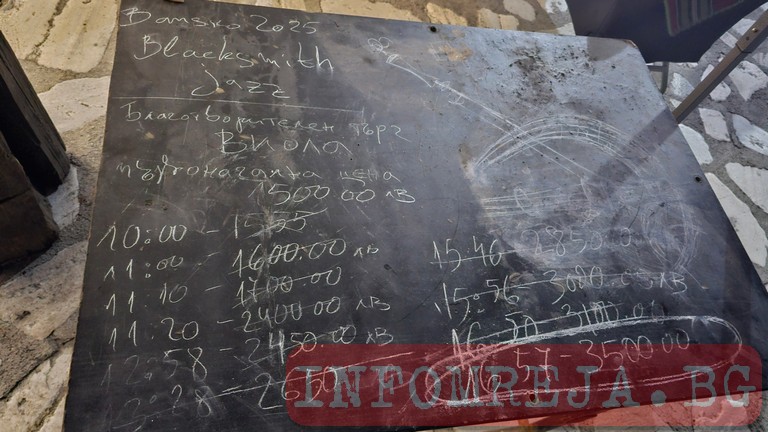 Банско 2025
Blacksmith
Jazz
Благотворителен търг
Виола
първоначална цена
1500 00 лв
10:00 –
11:00 – 1600.00 лв
11:10 – 1700.00
11.20 – 2400.00 лв
12:58 – 2450.00 лв
13:28 – 2650
15:46 – 2850.00
15:56 – 3000.00 лв
16:50 3100.00
16:57 – 3500 00
INFOMREJA.BG